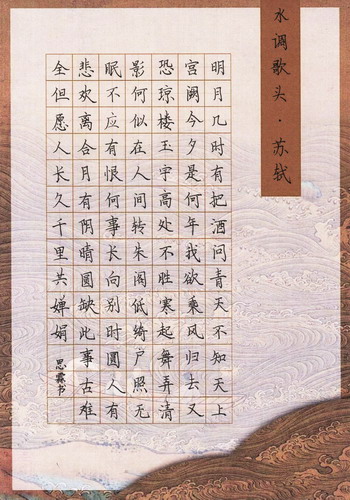 水调歌头·苏轼
明月几时有把酒问青天不知天上
宫阙今夕是何年我欲乘风归去又
恐琼楼玉宇高处不胜寒起舞弄清
影何似在人间转朱阁低绮户照无
眠不应有恨何事长向别时圆人有
悲欢离合月有阴晴圆缺此事古难
全但愿人长久千里共婵娟
思霖书